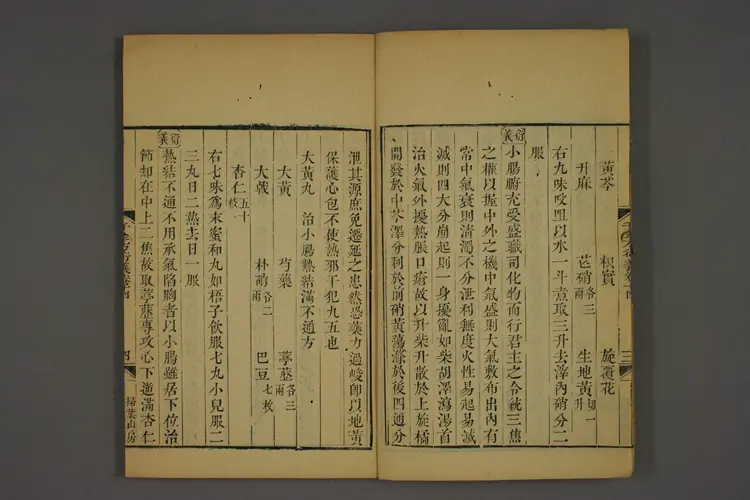 黃芩 枳實 旋覆花
升麻 芒硝各三兩 生地黃切一升
右九味㕮咀以水一斗煮取三升去滓內硝分二
服
衍義
小腸腑充受盛職司化物而行君主之令統三焦
之權以握中外之機中氣盛則大氣敷布出內有
常中氣衰則清濁不分泄利無度火性易起易滅
滅則四大分崩起則一身擾亂如柴胡澤瀉湯首
治火氣外擾熱脹口瘡故以升柴升散於上旋橘
開發於中芩澤分利於前硝黃蕩滌於後四通分
泄其源庶免遷延之患然恐藥力過峻即以地黃
保護心包不使熱邪干犯九五也
大黃丸 治小腸熱結滿不通方
大黃 芍藥 葶藶各三兩
大戟 朴硝各二兩 巴豆七枚
杏仁五十枚
右七味為末蜜和丸如梧子飲服七丸小兒服二
三丸日二熱去日一服
衍義
熱結不通不用承氣陷胸者以小腸雖居下位治
節却在中上二焦故取葶藶專攻心下逆滿杏仁
千金方衍義卷十四
三
掃葉山房